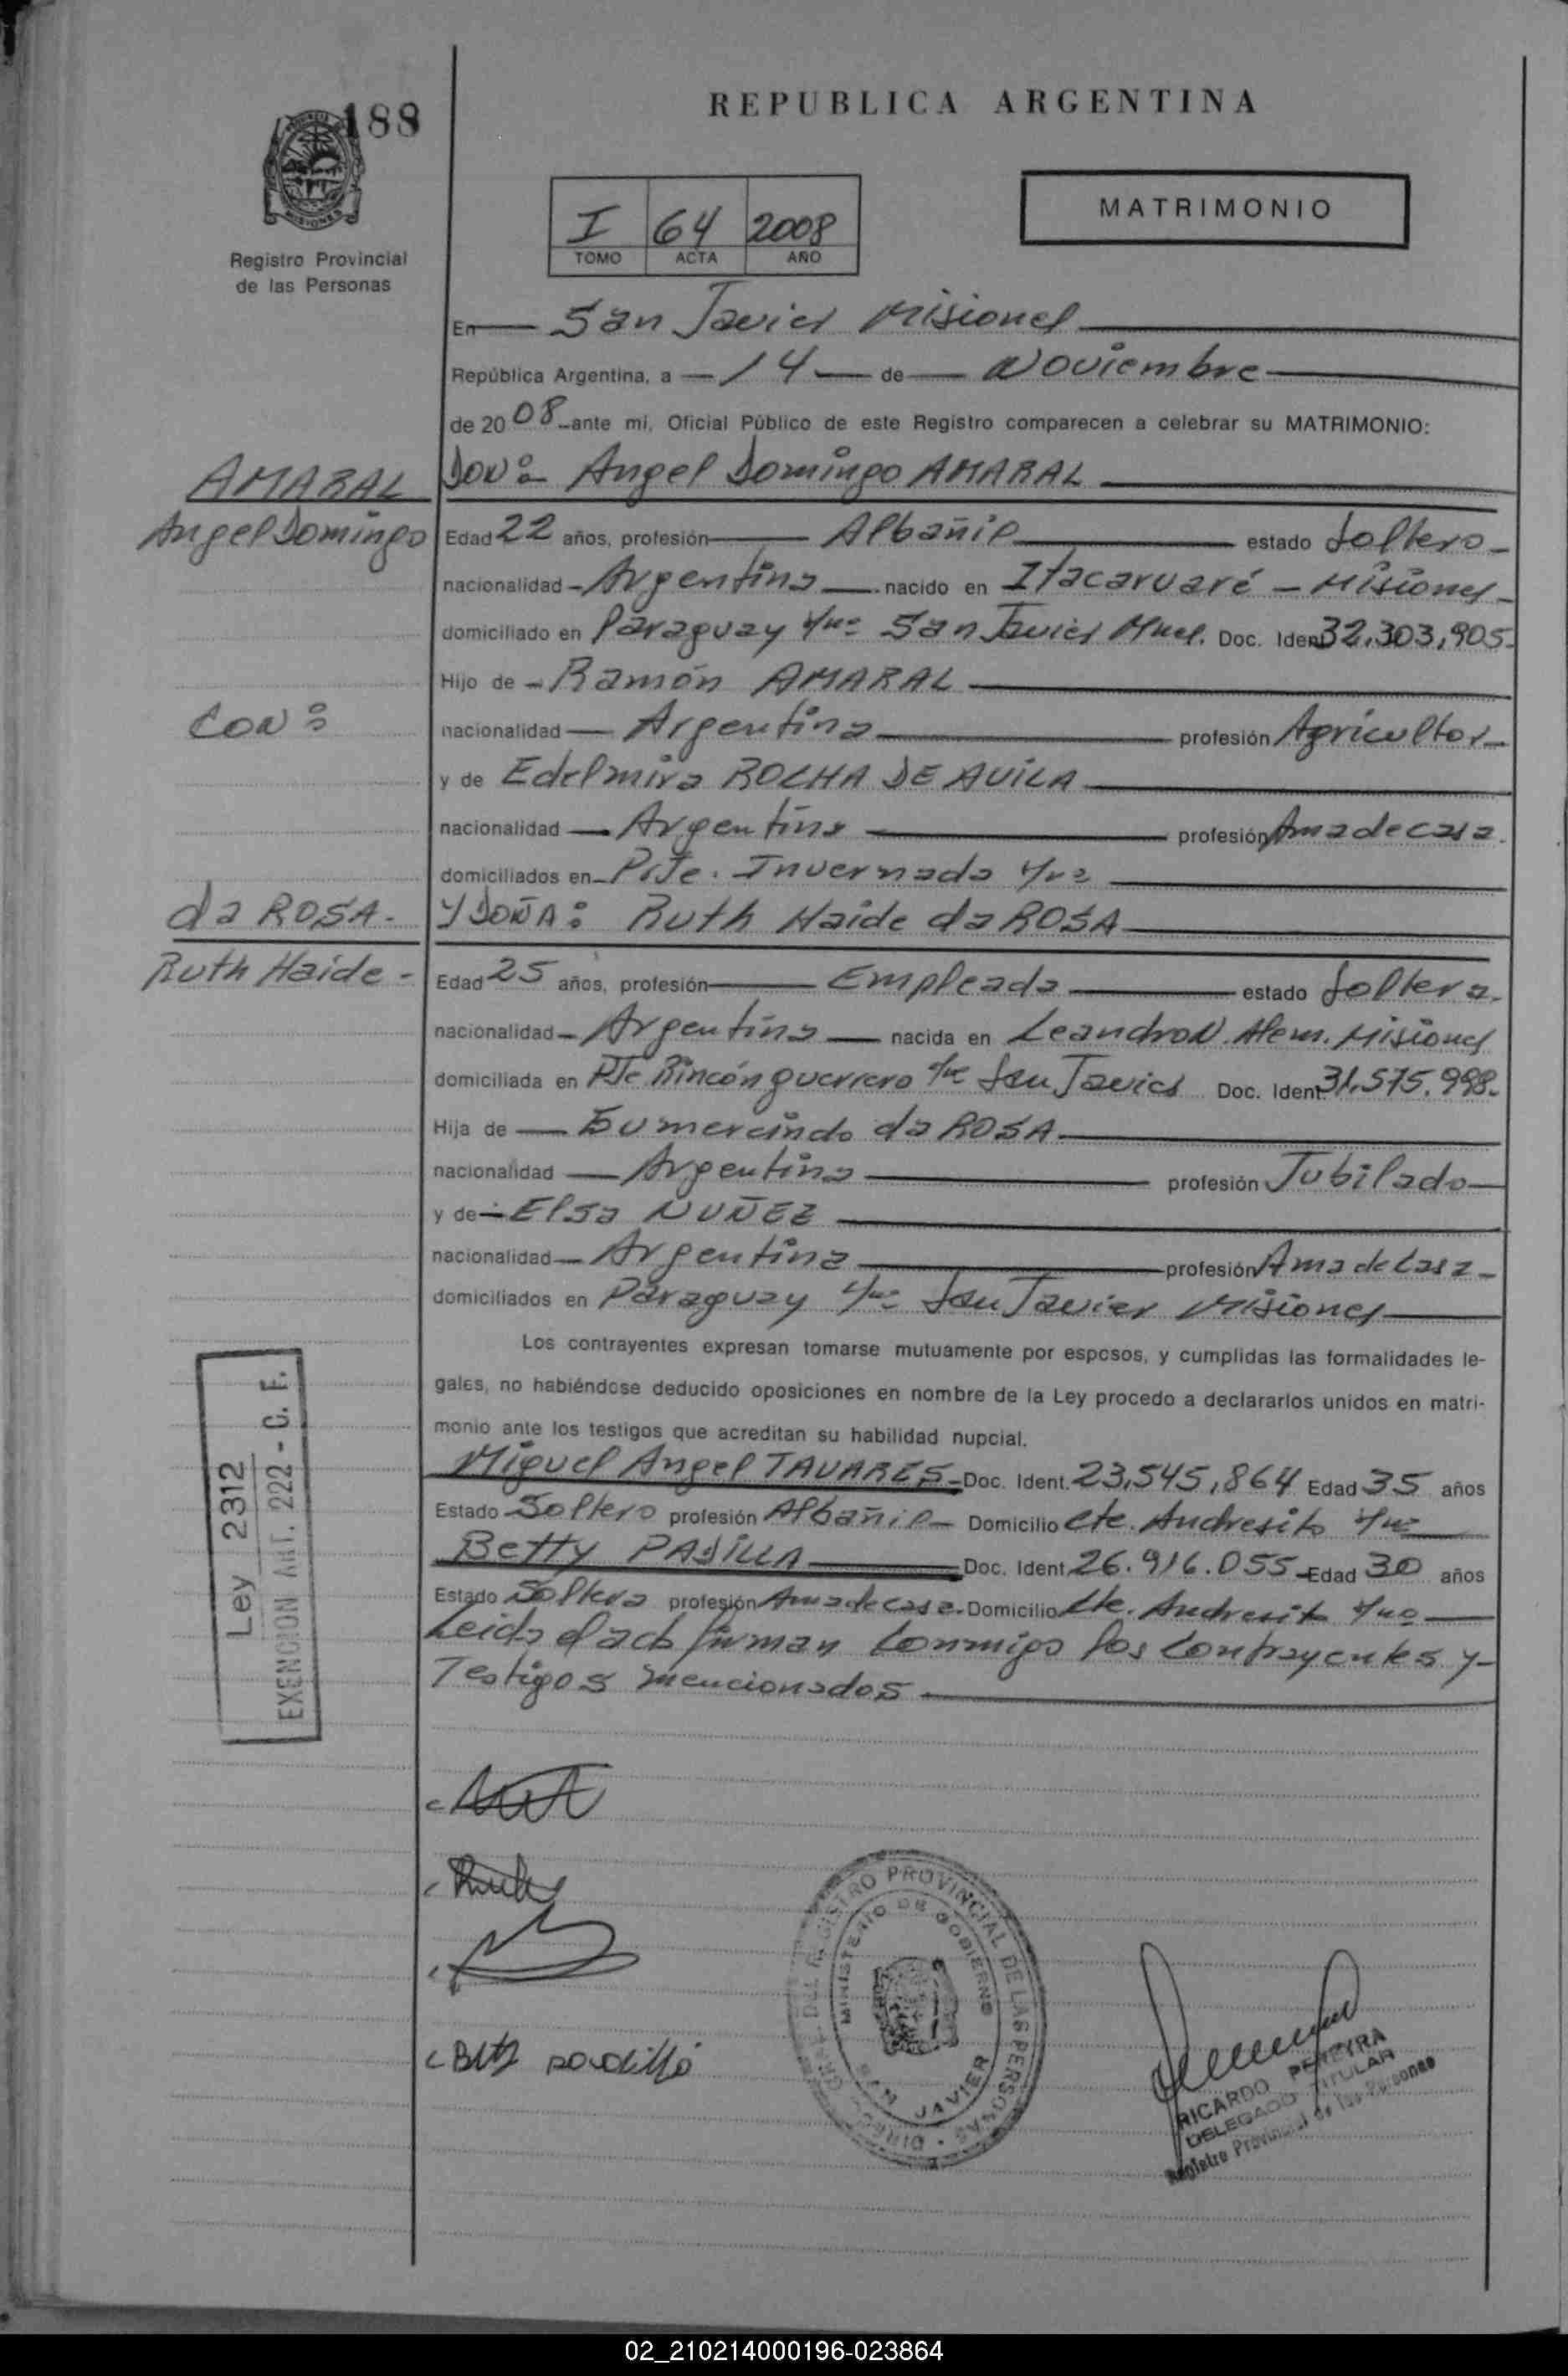 188
REPUBLICA ARGENTINA
MATRIMONIO
I 64 2008
TOMO ACTA AÑO
MISIONES
Registro Provincial
de las Personas
En San Javier Misiones
República Argentina, a 14 de Noviembre
de 2008 ante mi, Oficial Público de este Registro comparecen a celebrar su MATRIMONIO:
AMARAL
Angel Domingo
DON: Angel Domingo AMARAL
Edad 22 años, profesión Albañil estado Soltero
nacionalidad Argentina nacido en Itacaruaré - Misiones
domiciliado en Paraguay San Javier Mnes. Doc. Ident 32.303.905
Hijo de Ramón AMARAL
CON:
nacionalidad Argentina profesión Agricultor
y de Edelmira ROCHA DE AVILA
nacionalidad Argentina profesión Ama de casa
domiciliados en Pje. Invernada
da ROSA.
Ruth Haide
Y DOÑA: Ruth Haide da ROSA
Edad 25 años, profesión Empleada estado Soltera.
nacionalidad Argentina nacida en Leandro N. Alem. Misiones
domiciliada en Pje Rincón guerrero San Javier Doc. Ident 31.575.998.
Hija de Gumercindo da ROSA
nacionalidad Argentina profesión Jubilado
y de Elsa NUÑEZ
nacionalidad Argentina profesión Ama de casa
domiciliados en Paraguay San Javier Misiones
Los contrayentes expresan tomarse mutuamente por esposos, y cumplidas las formalidades le-
gales, no habiéndose deducido oposiciones en nombre de la Ley procedo a declararlos unidos en matri-
monio ante los testigos que acreditan su habilidad nupcial.
Miguel Angel TAVARES Doc. Ident. 23.545.864 Edad 35 años
Estado Soltero profesión Albañil Domicilio Cte. Andresito
Betty PADILLA Doc. Ident. 26.916.055 Edad 30 años
Estado Soltera profesión Ama de casa Domicilio Cte. Andresito
Leida el acta firman conmigo los contrayentes y
Testigos mencionados
Ley 2312
EXENCION ART. 222 - C. F.
DIRECC. GRAL. DEL REGISTRO PROVINCIAL DE LAS PERSONAS
MINISTERIO DE GOBIERNO
SAN JAVIER
RICARDO PEREYRA
DELEGADO TITULAR
Registro Provincial de las Personas
02_210214000196-023864